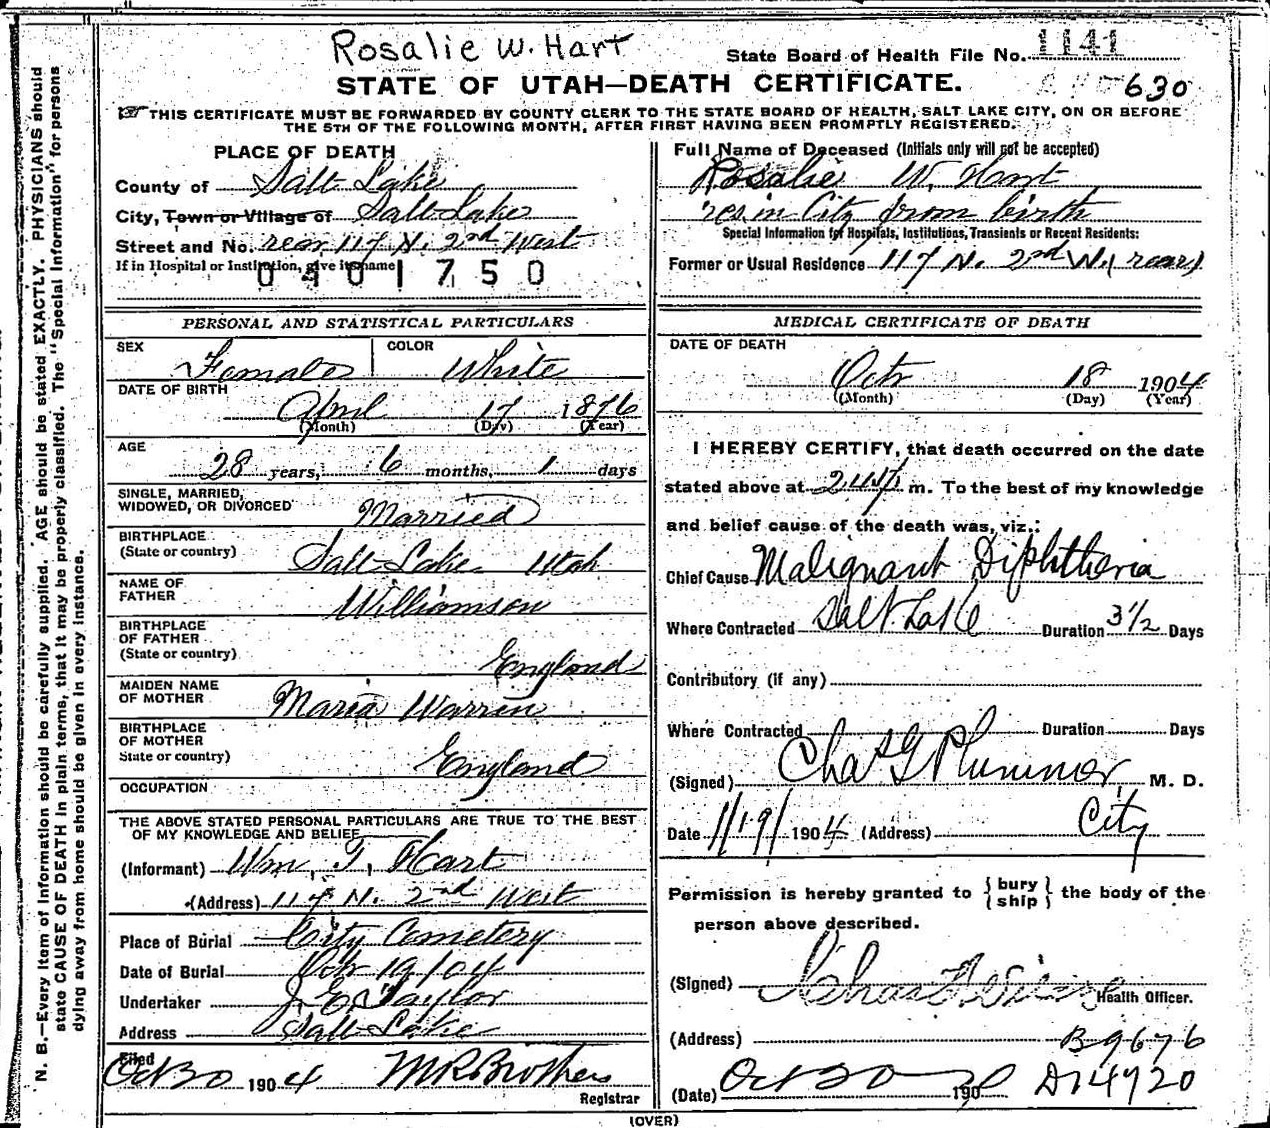 Rosalie W. Hart
State Board of Health File No. 1141
STATE OF UTAH—DEATH CERTIFICATE.
630
THIS CERTIFICATE MUST BE FORWARDED BY COUNTY CLERK TO THE STATE BOARD OF HEALTH, SALT LAKE CITY, ON OR BEFORE
THE 5TH OF THE FOLLOWING MONTH, AFTER FIRST HAVING BEEN PROMPTLY REGISTERED.
PLACE OF DEATH
County of Salt Lake
City, Town or Village of Salt Lake
Street and No. rear 117 N. 2nd West
If in Hospital or Institution, give its name
0401750
Full Name of Deceased (Initials only will not be accepted)
Rosalie W. Hart
res in City from birth
Special Information for Hospitals, Institutions, Transients or Recent Residents:
Former or Usual Residence 117 N. 2nd W. (rear)
PERSONAL AND STATISTICAL PARTICULARS
SEX Female
COLOR White
DATE OF BIRTH
April 17 1876
(Month) (Day) (Year)
AGE
28 years, 6 months, 1 days
SINGLE, MARRIED,
WIDOWED, OR DIVORCED Married
BIRTHPLACE
(State or country) Salt Lake Utah
NAME OF
FATHER Williamson
BIRTHPLACE
OF FATHER
(State or country) England
MAIDEN NAME
OF MOTHER Maria Warren
BIRTHPLACE
OF MOTHER
State or country) England
OCCUPATION
THE ABOVE STATED PERSONAL PARTICULARS ARE TRUE TO THE BEST
OF MY KNOWLEDGE AND BELIEF
(Informant) Wm. T. Hart
(Address) 117 N. 2nd West
Place of Burial City Cemetery
Date of Burial Oct 19/04
Undertaker J. E. Taylor
Address Salt Lake
Filed
Oct 20 1904 M R Brothers
Registrar
MEDICAL CERTIFICATE OF DEATH
DATE OF DEATH
Oct 18 1904
(Month) (Day) (Year)
I HEREBY CERTIFY, that death occurred on the date
stated above at m. To the best of my knowledge
and belief cause of the death was, viz.:
Chief Cause Malignant Diphtheria
Where Contracted Salt Lake Duration 3 1/2 Days
Contributory (if any)
Where Contracted Duration Days
(Signed) Chas G Plummer M. D.
Date 1904 (Address) City
Permission is hereby granted to { bury ship } the body of the
person above described.
(Signed) Chas Health Officer.
(Address) B9676
(Date) Oct 20 190 D14720
(OVER)
N. B.—Every item of information should be carefully supplied. AGE should be stated EXACTLY. PHYSICIANS should
state CAUSE OF DEATH in plain terms, that it may be properly classified. The "Special Information" for persons
dying away from home should be given in every instance.